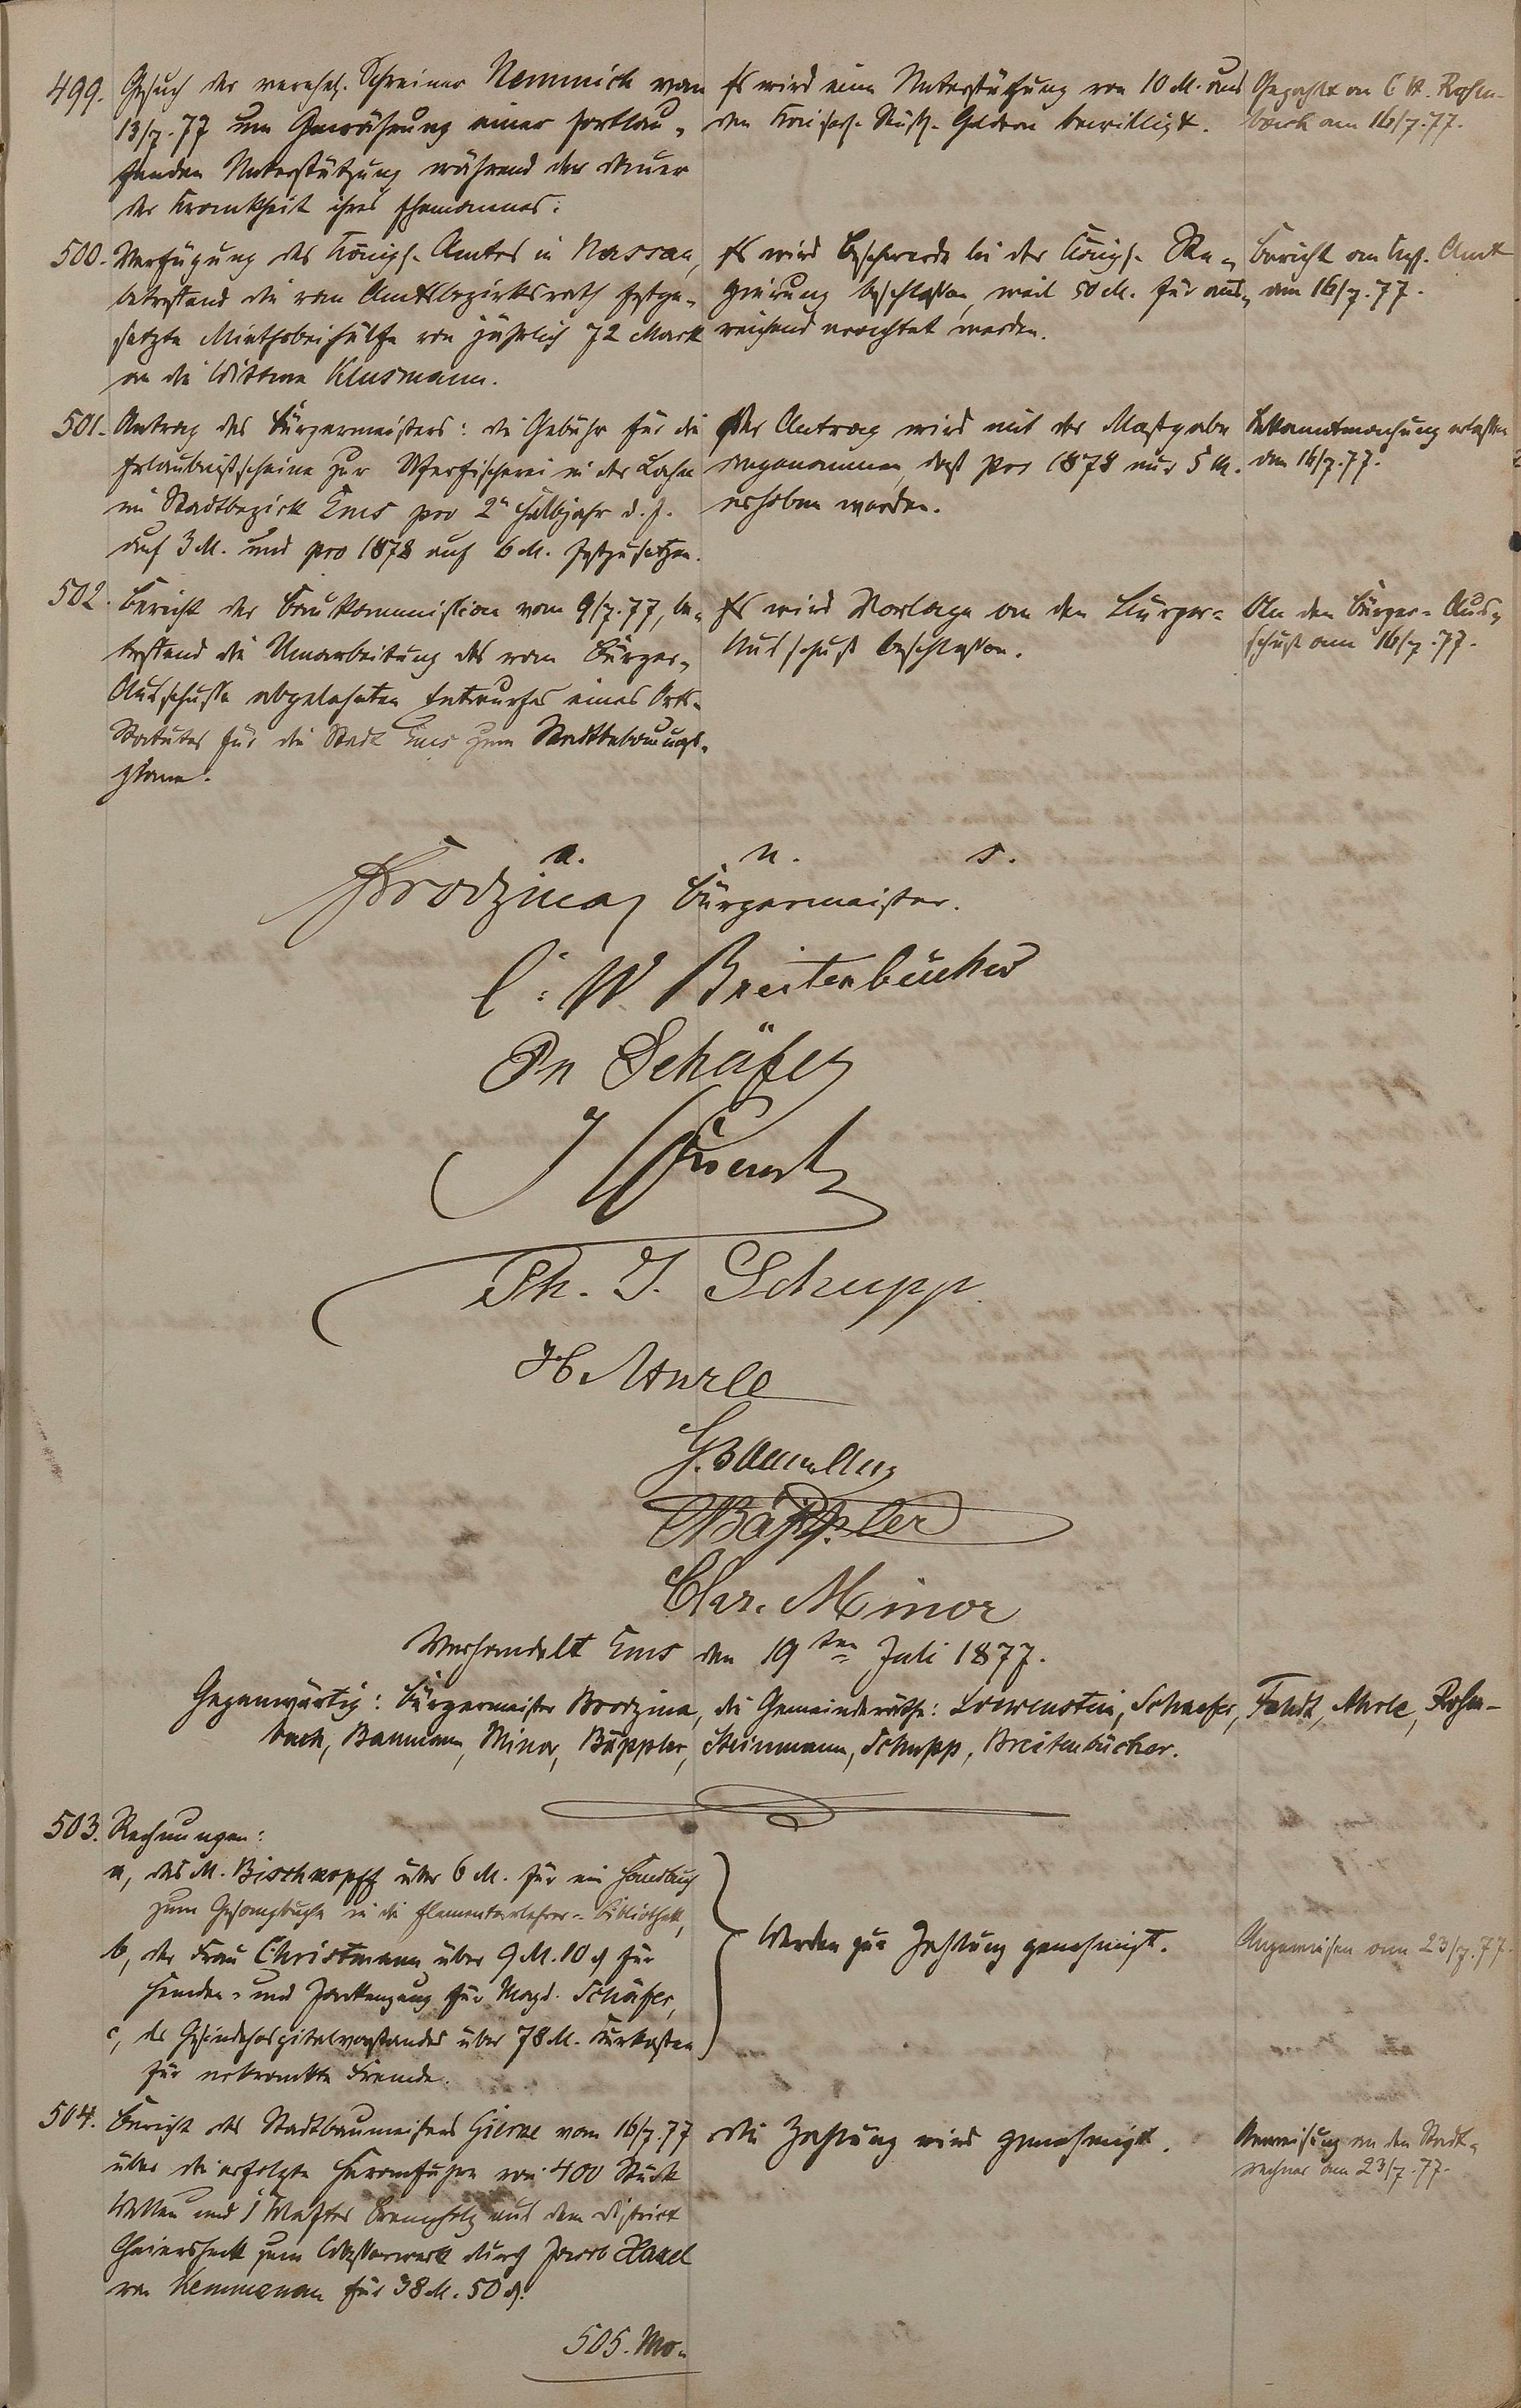 499. Gesuch der verehel. Schreiner Nemmich vom
13/7.77 um Gewährung einer fortlau-
fenden Unterstützung während der Dauer
der Krankheit ihres Ehemannes.
Es wird eine Unterstützung von 10 M. aus
den Kaiserl. Geldern bewilligt.
Gezahlt an C. W. Rosen-
bach am 16/7.77.
500. Verfügung des Königl. Amtes in Nassau,
betreffend die vom Amtsbezirksrath festge-
setzte Miethsbeihülfe von jährlich 72 Mark
an die Wittwe Klusmann.
Es wird Beschwerde bei der Königl. Re-
gierung beschlossen, weil 50 M. für aus-
reichend erachtet werden.
Bericht an Kgl. Amt
am 16/7.77.
501. Antrag des Bürgermeisters: die Gebühr für die
Erlaubnißscheine zur Uferfischerei in der Lahn
im Stadtbezirk Ems pro 2n Halbjahr d. J.
auf 3 M. und pro 1878 auf 6 M. festzusetzen.
Der Antrag wird mit der Maßgabe
angenommen, daß pro 1878 nur 5 M.
erhoben werden.
Bekanntmachung erlassen
den 16/7.77.
502. Bericht der Baukommission vom 9/7.77, be-
treffend die Umarbeitung des vom Bürger-
Ausschusse abgelehnten Entwurfes eines Orts-
Statutes für die Stadt Ems zum Stadtbebauungs-
plane.
Es wird Vorlage an den Bürger-
Ausschuß beschlossen.
An den Bürger-Aus-
schuß am 16/7.77.
a. u. s.
Brodzina, Bürgermeister.
C. W. Breitenbücher
Dr Schäfer
Ph. J. Schupp
H. Ahrle
G. Baumann
Bäppler
Chr. Minor
Verhandelt Ems den 19ten Juli 1877.
Gegenwärtig: Bürgermeister Brodzina, die Gemeinderäthe: Loewenstein, Schaefer, Fendt, Ahrle, Rosen-
bach, Baumann, Minor, Bäppler, Steinmann, Schupp, Breitenbücher.
503. Rechnungen:
a, des M. Bischkopff über 6 M. für ein Handbuch
zum Gesangbuche in die Elementarlehrer-Bibliothek,
b, der Frau Christmann über 9 M. 10 d für
Hemden- und Jackenzeug für Magd. Schäfer,
c, des Gesindehospitalvorstandes über 78 M. Kurkosten
für erkrankte Fremde.
Werden zur Zahlung genehmigt.
Angewiesen am 23/7.77.
504. Bericht des Stadtbaumeisters Gierke vom 16/7.77
über die erfolgte Heranfuhre von 400 Stück
Wellen und 1 Klafter Brennholz aus dem District
zum durch Jacob Hasel
von Kemmenau für 38 M. 50 d.
Die Zahlung wird genehmigt.
Anweisung an den Stadt-
rechner am 23/7.77.
505. Mo-